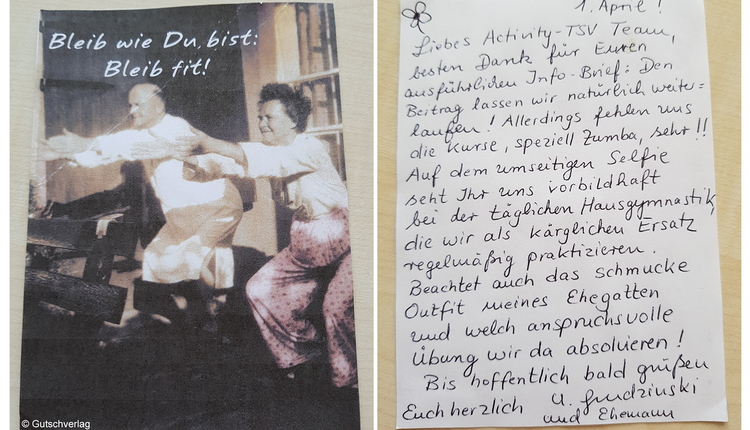 Bleib wie Du bist:
Bleib fit!
© Gutschverlag
1. April !
Liebes Activity-TSV Team,
besten Dank für Euren
ausführlichen Info-Brief: Den
Beitrag lassen wir natürlich weiter=
laufen! Allerdings fehlen uns
die Kurse, speziell Zumba, sehr!!
Auf dem umseitigen Selfie
seht Ihr uns vorbildhaft
bei der täglichen Hausgymnastik,
die wir als kärglichen Ersatz
regelmäßig praktizieren.
Beachtet auch das schmucke
Outfit meines Ehegatten
und welch anspruchsvolle
Übung wir da absolvieren!
Bis hoffentlich bald grüßen
Euch herzlich U. Gudzinski
und Ehemann